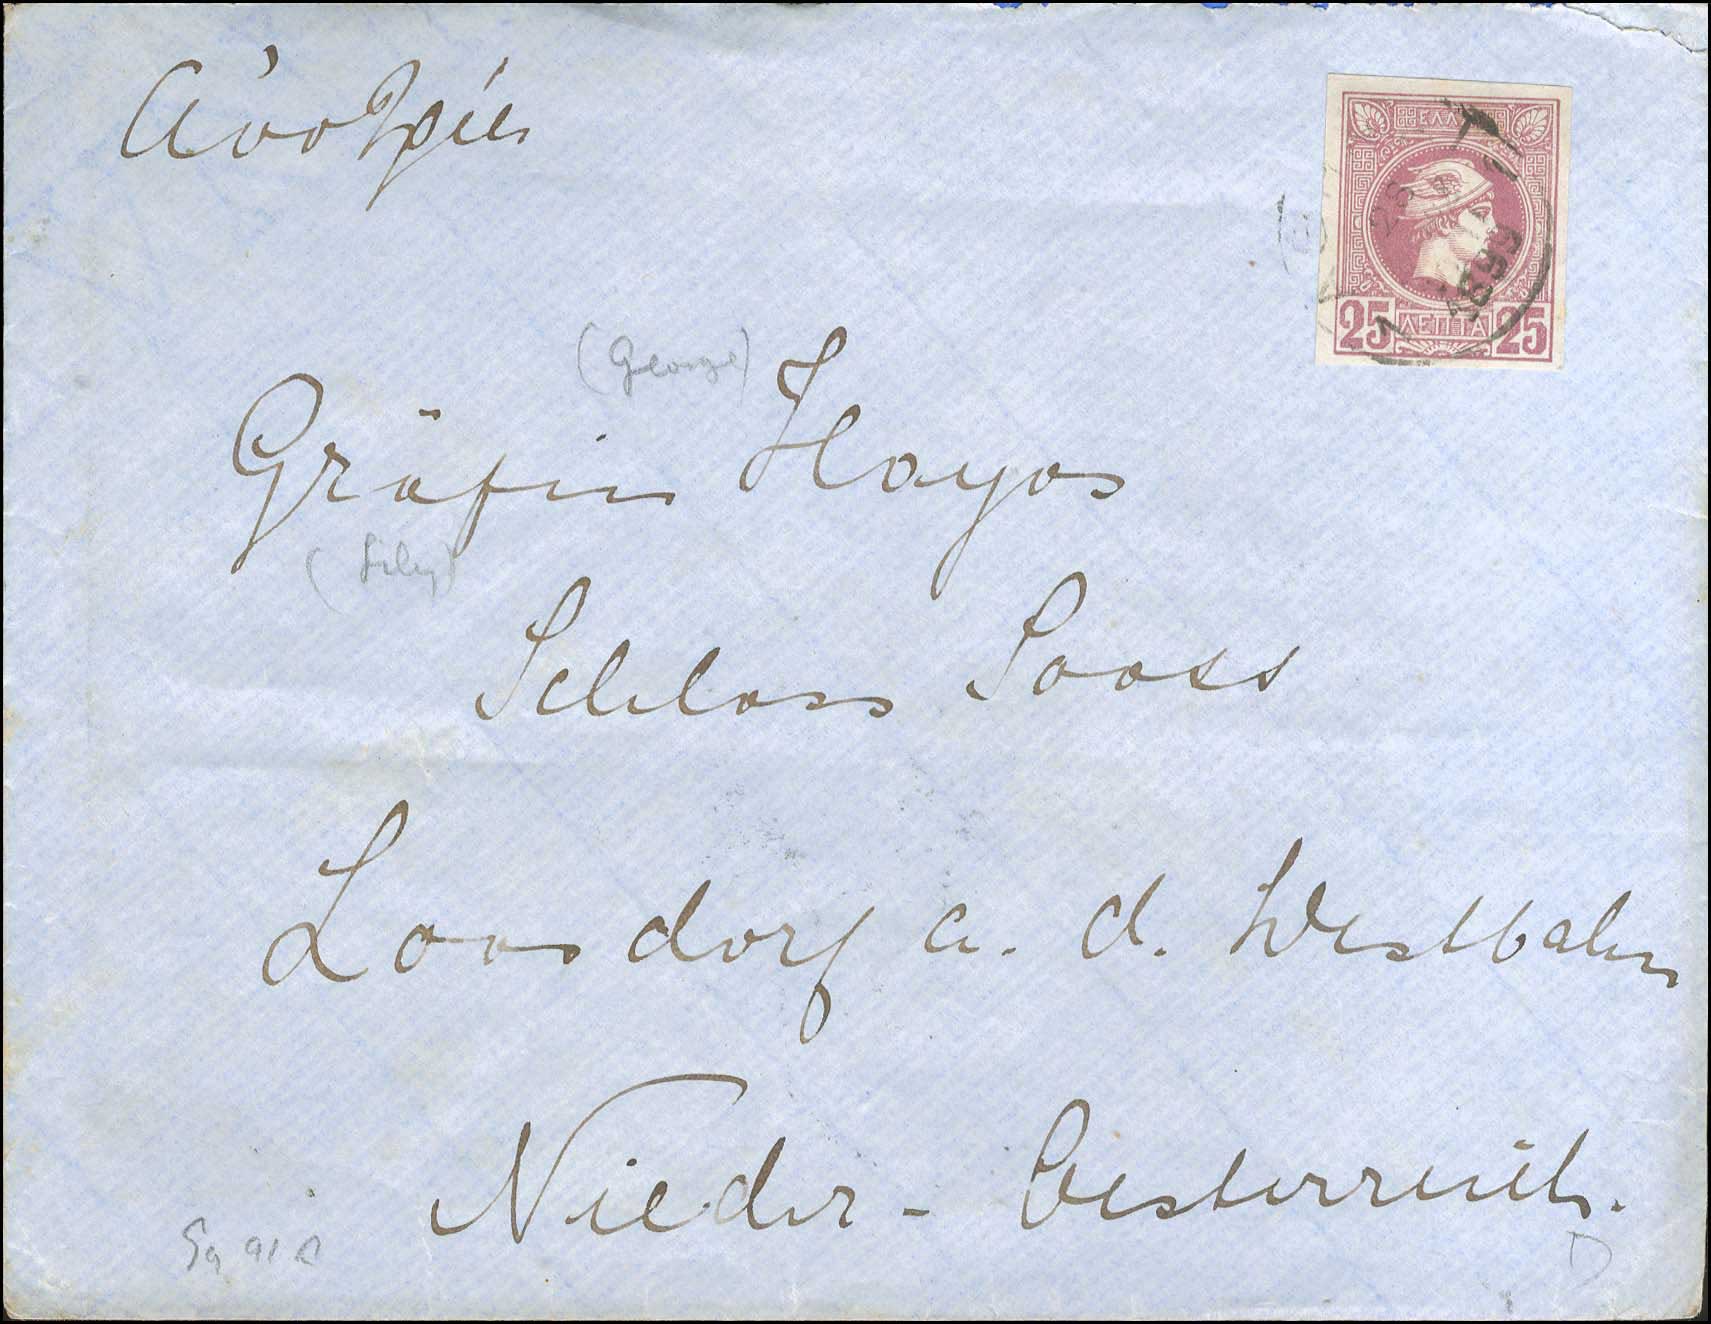 Αὐστρία
ΕΛΛ
25 ΛΕΠΤΑ 25
1899
(George)
Gräfin Hoyos
(Lily)
Schloss Sooss
Loosdorf a. d. Westbahn
Nieder-Oesterreich.